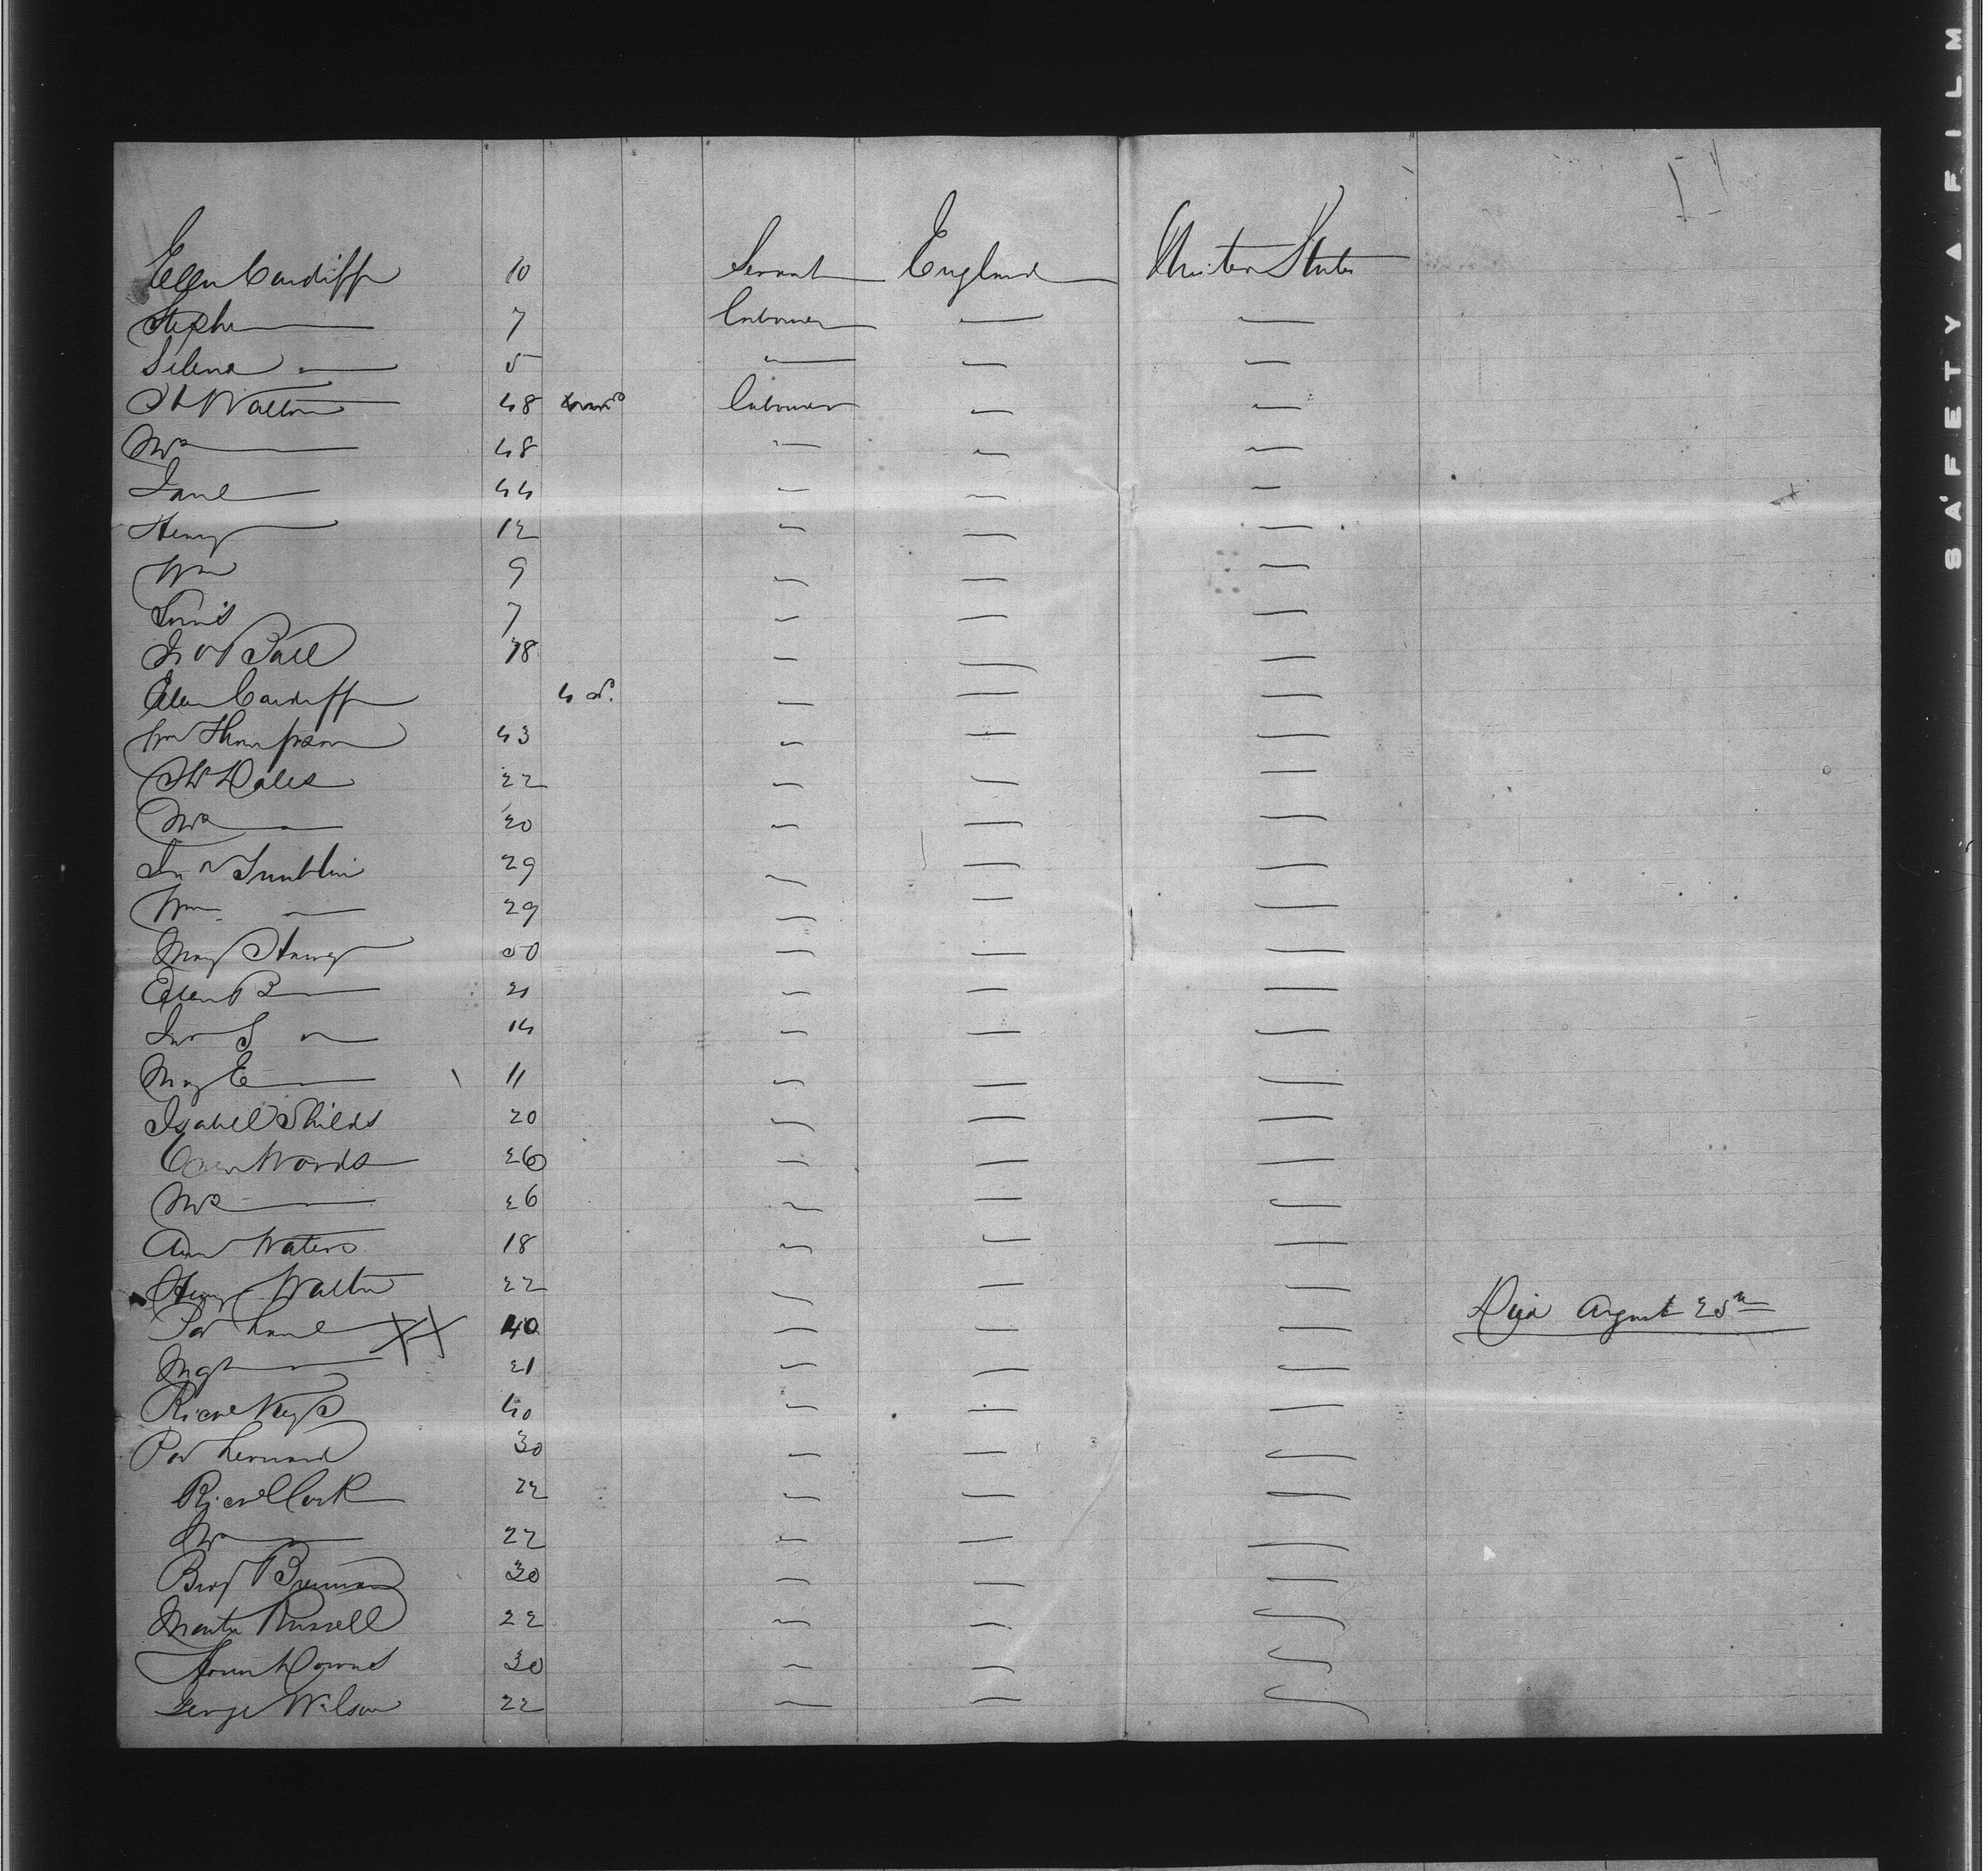 Ellen Cardiff 10 Servant England United States
Stephen — 7 Labourer — —
Selena — 5 — — —
Walton 48 Labourer — —
Mrs — 48 — — —
Jane — 44 — — —
Henry — 12 — — —
Wm 9 — — —
Louis 7 — — —
Jno Ball 18 — — —
Ellen Cardiff 4 — — —
Wm Thompson 43 — — —
Dales 22 — — —
Mrs — 20 — — —
Jno 29 — — —
Wm — 29 — — —
Mary 50 — — —
Ellen B — 21 — — —
Jno S — 14 — — —
Mary E — 11 — — —
Isabell Shields 20 — — —
Owen Wards 26 — — —
Mrs — 26 — — —
Ann Waters 18 — — —
Henry Walton 22 — — —
Pat Lane XX 40 — — — Died August 25th
Mgt — 21 — — —
Richd Keys 40 — — —
Pat Lennard 30 — — —
Richd Clark 22 — — —
Mrs — 22 — — —
Brennan 30 — — —
Martin Russell 22 — — —
Downes 30 — — —
George Wilson 22 — — —
SAFETY FILM